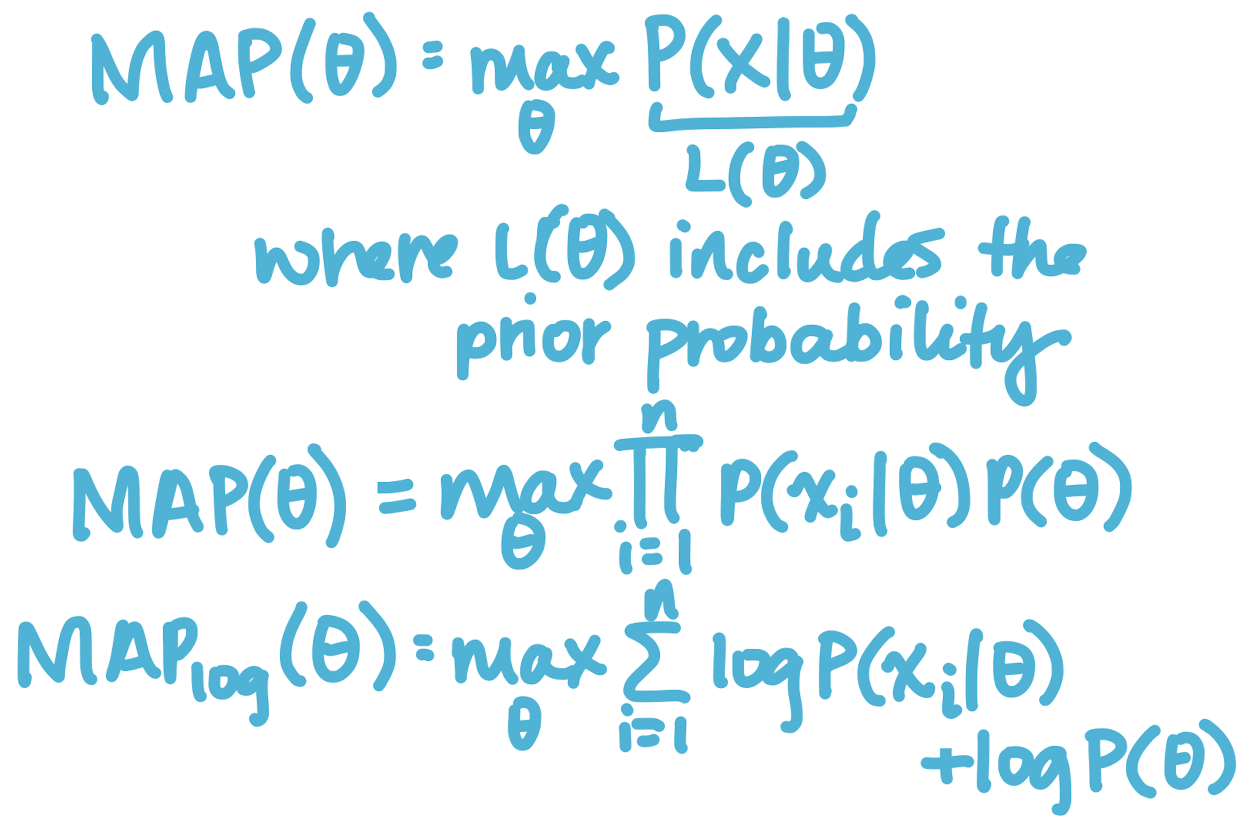 MAP(θ) = max_θ P(x|θ)
L(θ)
where L(θ) includes the
prior probability
MAP(θ) = max_θ ∏_{i=1}^{n} P(x_i|θ)P(θ)
MAP_log(θ) = max_θ ∑_{i=1}^{n} log P(x_i|θ)
+log P(θ)